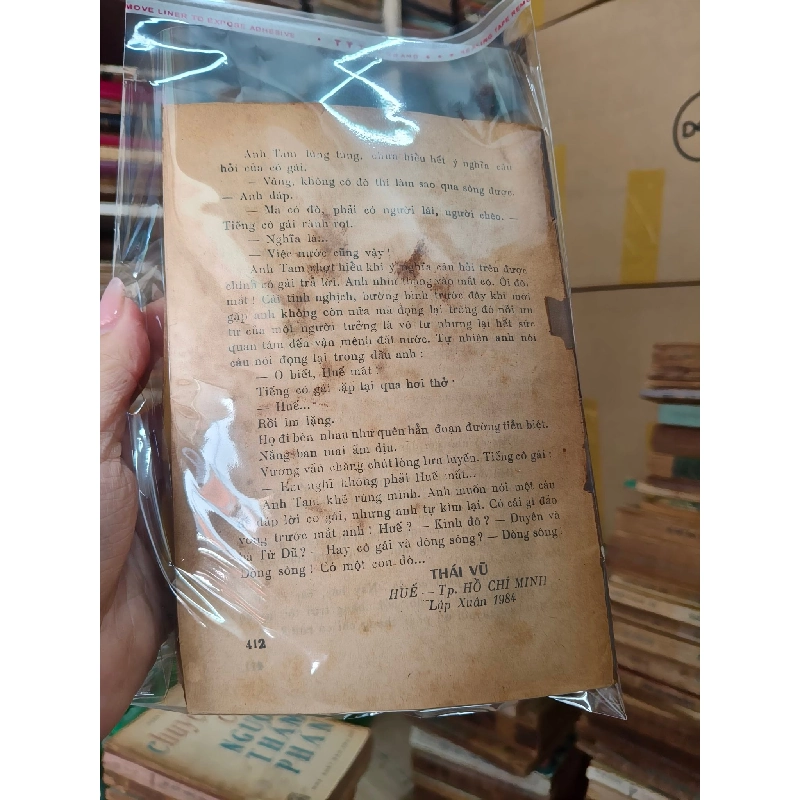 MOVE LINER TO EXPOSE ADHESIVE
Anh Tam lúng túng, chưa hiểu hết ý nghĩa câu
hỏi của cô gái.
— Vâng, không có đò thì làm sao qua sông được.
— Anh đáp.
— Mà có đò, phải có người lái, người chèo. —
Tiếng cô gái rành rọt.
— Nghĩa là...
— Việc nước cũng vậy!
Anh Tam chợt hiểu khi ý nghĩa câu hỏi trên được
chính cô gái trả lời. Anh nhìn thẳng vào mắt cô. Ôi đôi
mắt! Cái tinh nghịch, bướng bỉnh trước đây khi mới
gặp anh không còn nữa mà đọng lại trong đó nỗi ưu
tư của một người tưởng là vô tư nhưng lại hết sức
quan tâm đến vận mệnh đất nước. Tự nhiên anh nói
câu nói đọng lại trong đầu anh:
— O biết, Huế mất?
Tiếng cô gái lặp lại qua hơi thở
— Huế...
Rồi im lặng.
Họ đi bên nhau như quên hẳn đoạn đường tiễn biệt.
Nắng ban mai ấm dịu.
Vương vấn chăng chút lòng lưu luyến. Tiếng cô gái:
— Em nghĩ không phải Huế mất...
Anh Tam khẽ rùng mình. Anh muốn nói một câu
đáp lời cô gái, nhưng anh tự kìm lại. Có cái gì đảo
vòng trước mắt anh: Huế? — Kinh đô? — Duyên và
bà Từ Dũ? — Hay cô gái và dòng sông? — Dòng sông
Dòng sông! Có một con đò...
THÁI VŨ
HUẾ — Tp. HỒ CHÍ MINH
Lập Xuân 1984
412
Chuyện
NGƯỜI
THÀNH
PHÁN